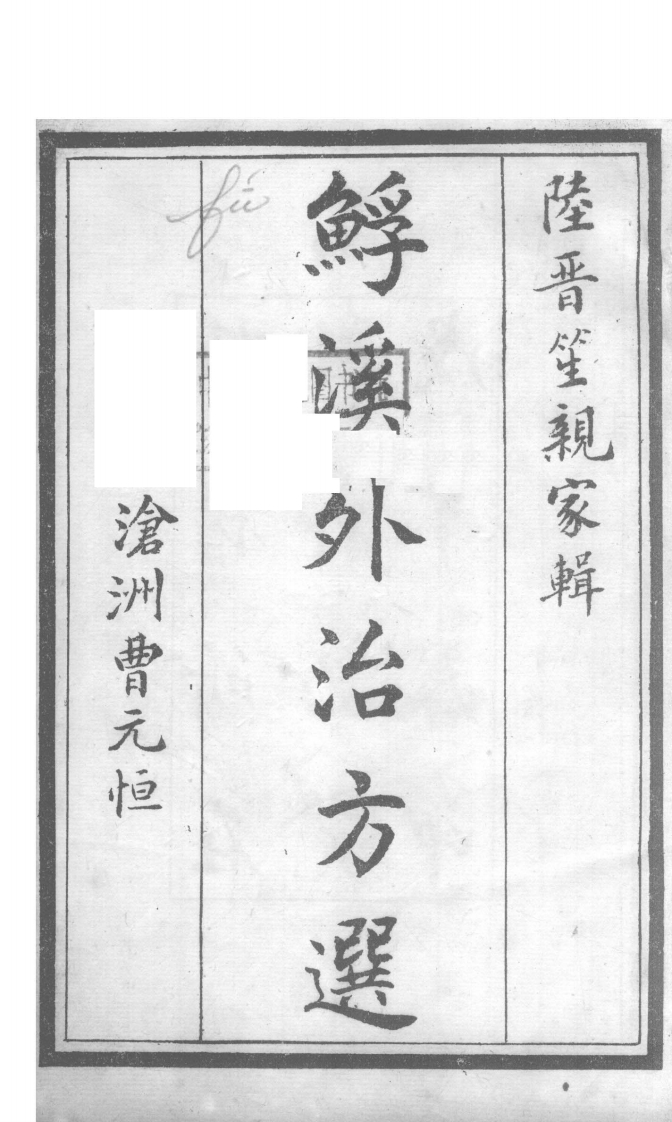 陸晋笙親家輯
鯚溪外治方選
滄洲曹元恒
fú